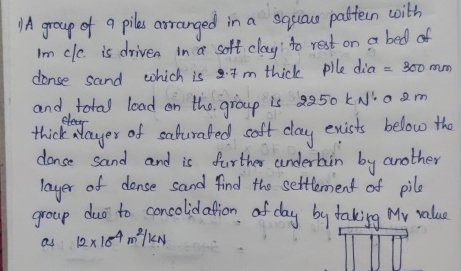 1) A group of 9 piles arranged in a square pattern with
1m c/c is driven in a soft clay to rest on a bed of
dense sand which is 2.7 m thick pile dia = 300 mm
and total load on the group is 2250 kN. a 2m
clay
thick layer of saturated soft clay exists below the
dense sand and is further underlain by another
layer of dense sand find the settlement of pile
group due to consolidation of clay by taking Mv value
as 12 x 10-4 m2/kN